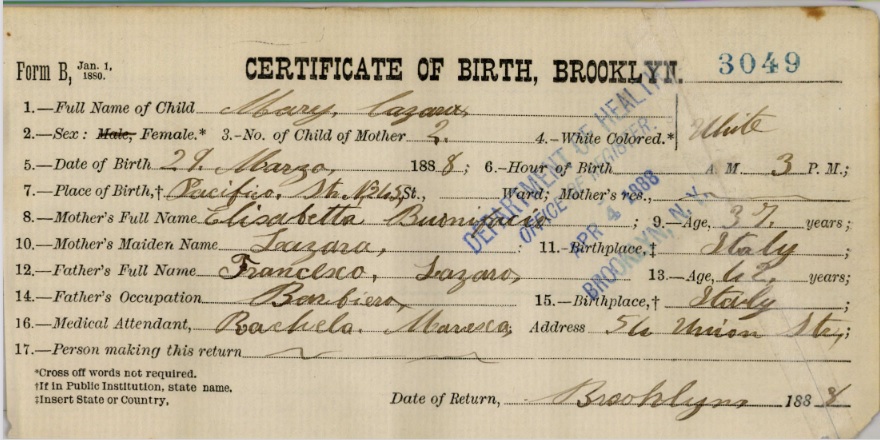 Form B, Jan. 1, 1880. CERTIFICATE OF BIRTH, BROOKLYN. 3049
1.—Full Name of Child Mary, Lazara,
2.—Sex: Male, Female.* 3.-No. of Child of Mother 2. 4.—White Colored.* White
5.—Date of Birth 29. Marzo, 1888; 6.—Hour of Birth A. M. 3 P. M.;
7.—Place of Birth,† Pacific, Str. St., Ward; Mother's res.,
8.—Mother's Full Name Elisabetta ; 9.—Age, 37, years;
10.—Mother's Maiden Name Lazara, 11.—Birthplace,‡ Italy ;
12.—Father's Full Name Francesco, Lazaro, 13.—Age, years;
14.—Father's Occupation Barbiero, 15.—Birthplace,† Italy ;
16.—Medical Attendant, Rachela. Maresca, Address 56 Union Str,;
17.—Person making this return
*Cross off words not required.
†If in Public Institution, state name.
‡Insert State or Country,
Date of Return, Brooklyn 1888
DEPARTMENT OF HEALTH
OFFICE OF REGISTER.
APR 4 1888
BROOKLYN, N.Y.